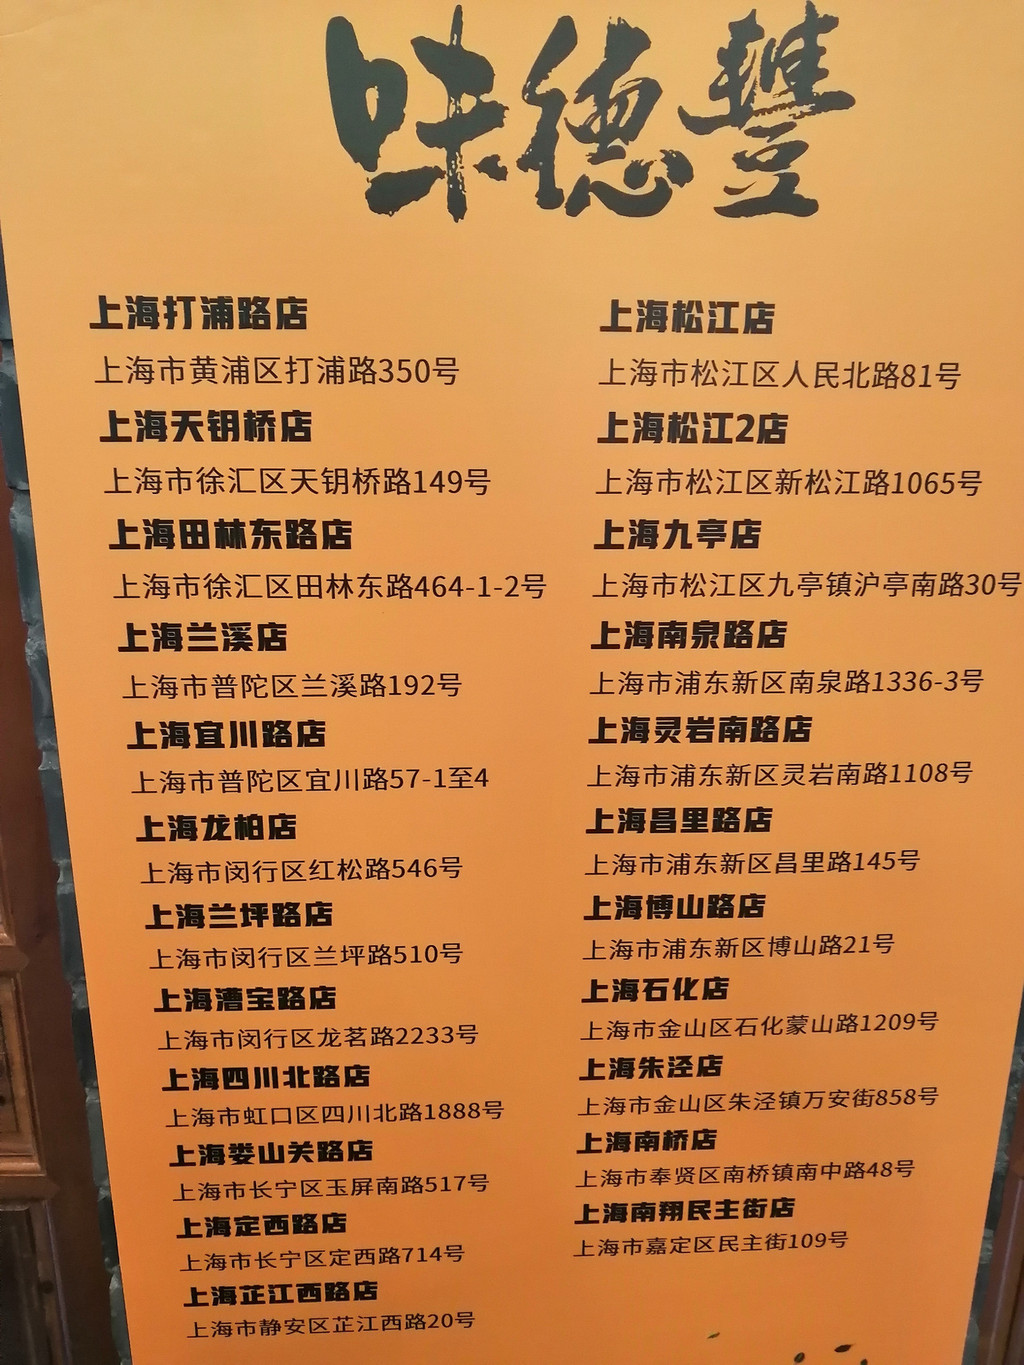 味德豐
上海打浦路店
上海市黄浦区打浦路350号
上海天钥桥店
上海市徐汇区天钥桥路149号
上海田林东路店
上海市徐汇区田林东路464-1-2号
上海兰溪店
上海市普陀区兰溪路192号
上海宜川路店
上海市普陀区宜川路57-1至4
上海龙柏店
上海市闵行区红松路546号
上海兰坪路店
上海市闵行区兰坪路510号
上海漕宝路店
上海市闵行区龙茗路2233号
上海四川北路店
上海市虹口区四川北路1888号
上海娄山关路店
上海市长宁区玉屏南路517号
上海定西路店
上海市长宁区定西路714号
上海芷江西路店
上海市静安区芷江西路20号
上海松江店
上海市松江区人民北路81号
上海松江2店
上海市松江区新松江路1065号
上海九亭店
上海市松江区九亭镇沪亭南路30号
上海南泉路店
上海市浦东新区南泉路1336-3号
上海灵岩南路店
上海市浦东新区灵岩南路1108号
上海昌里路店
上海市浦东新区昌里路145号
上海博山路店
上海市浦东新区博山路21号
上海石化店
上海市金山区石化蒙山路1209号
上海朱泾店
上海市金山区朱泾镇万安街858号
上海南桥店
上海市奉贤区南桥镇南中路48号
上海南翔民主街店
上海市嘉定区民主街109号